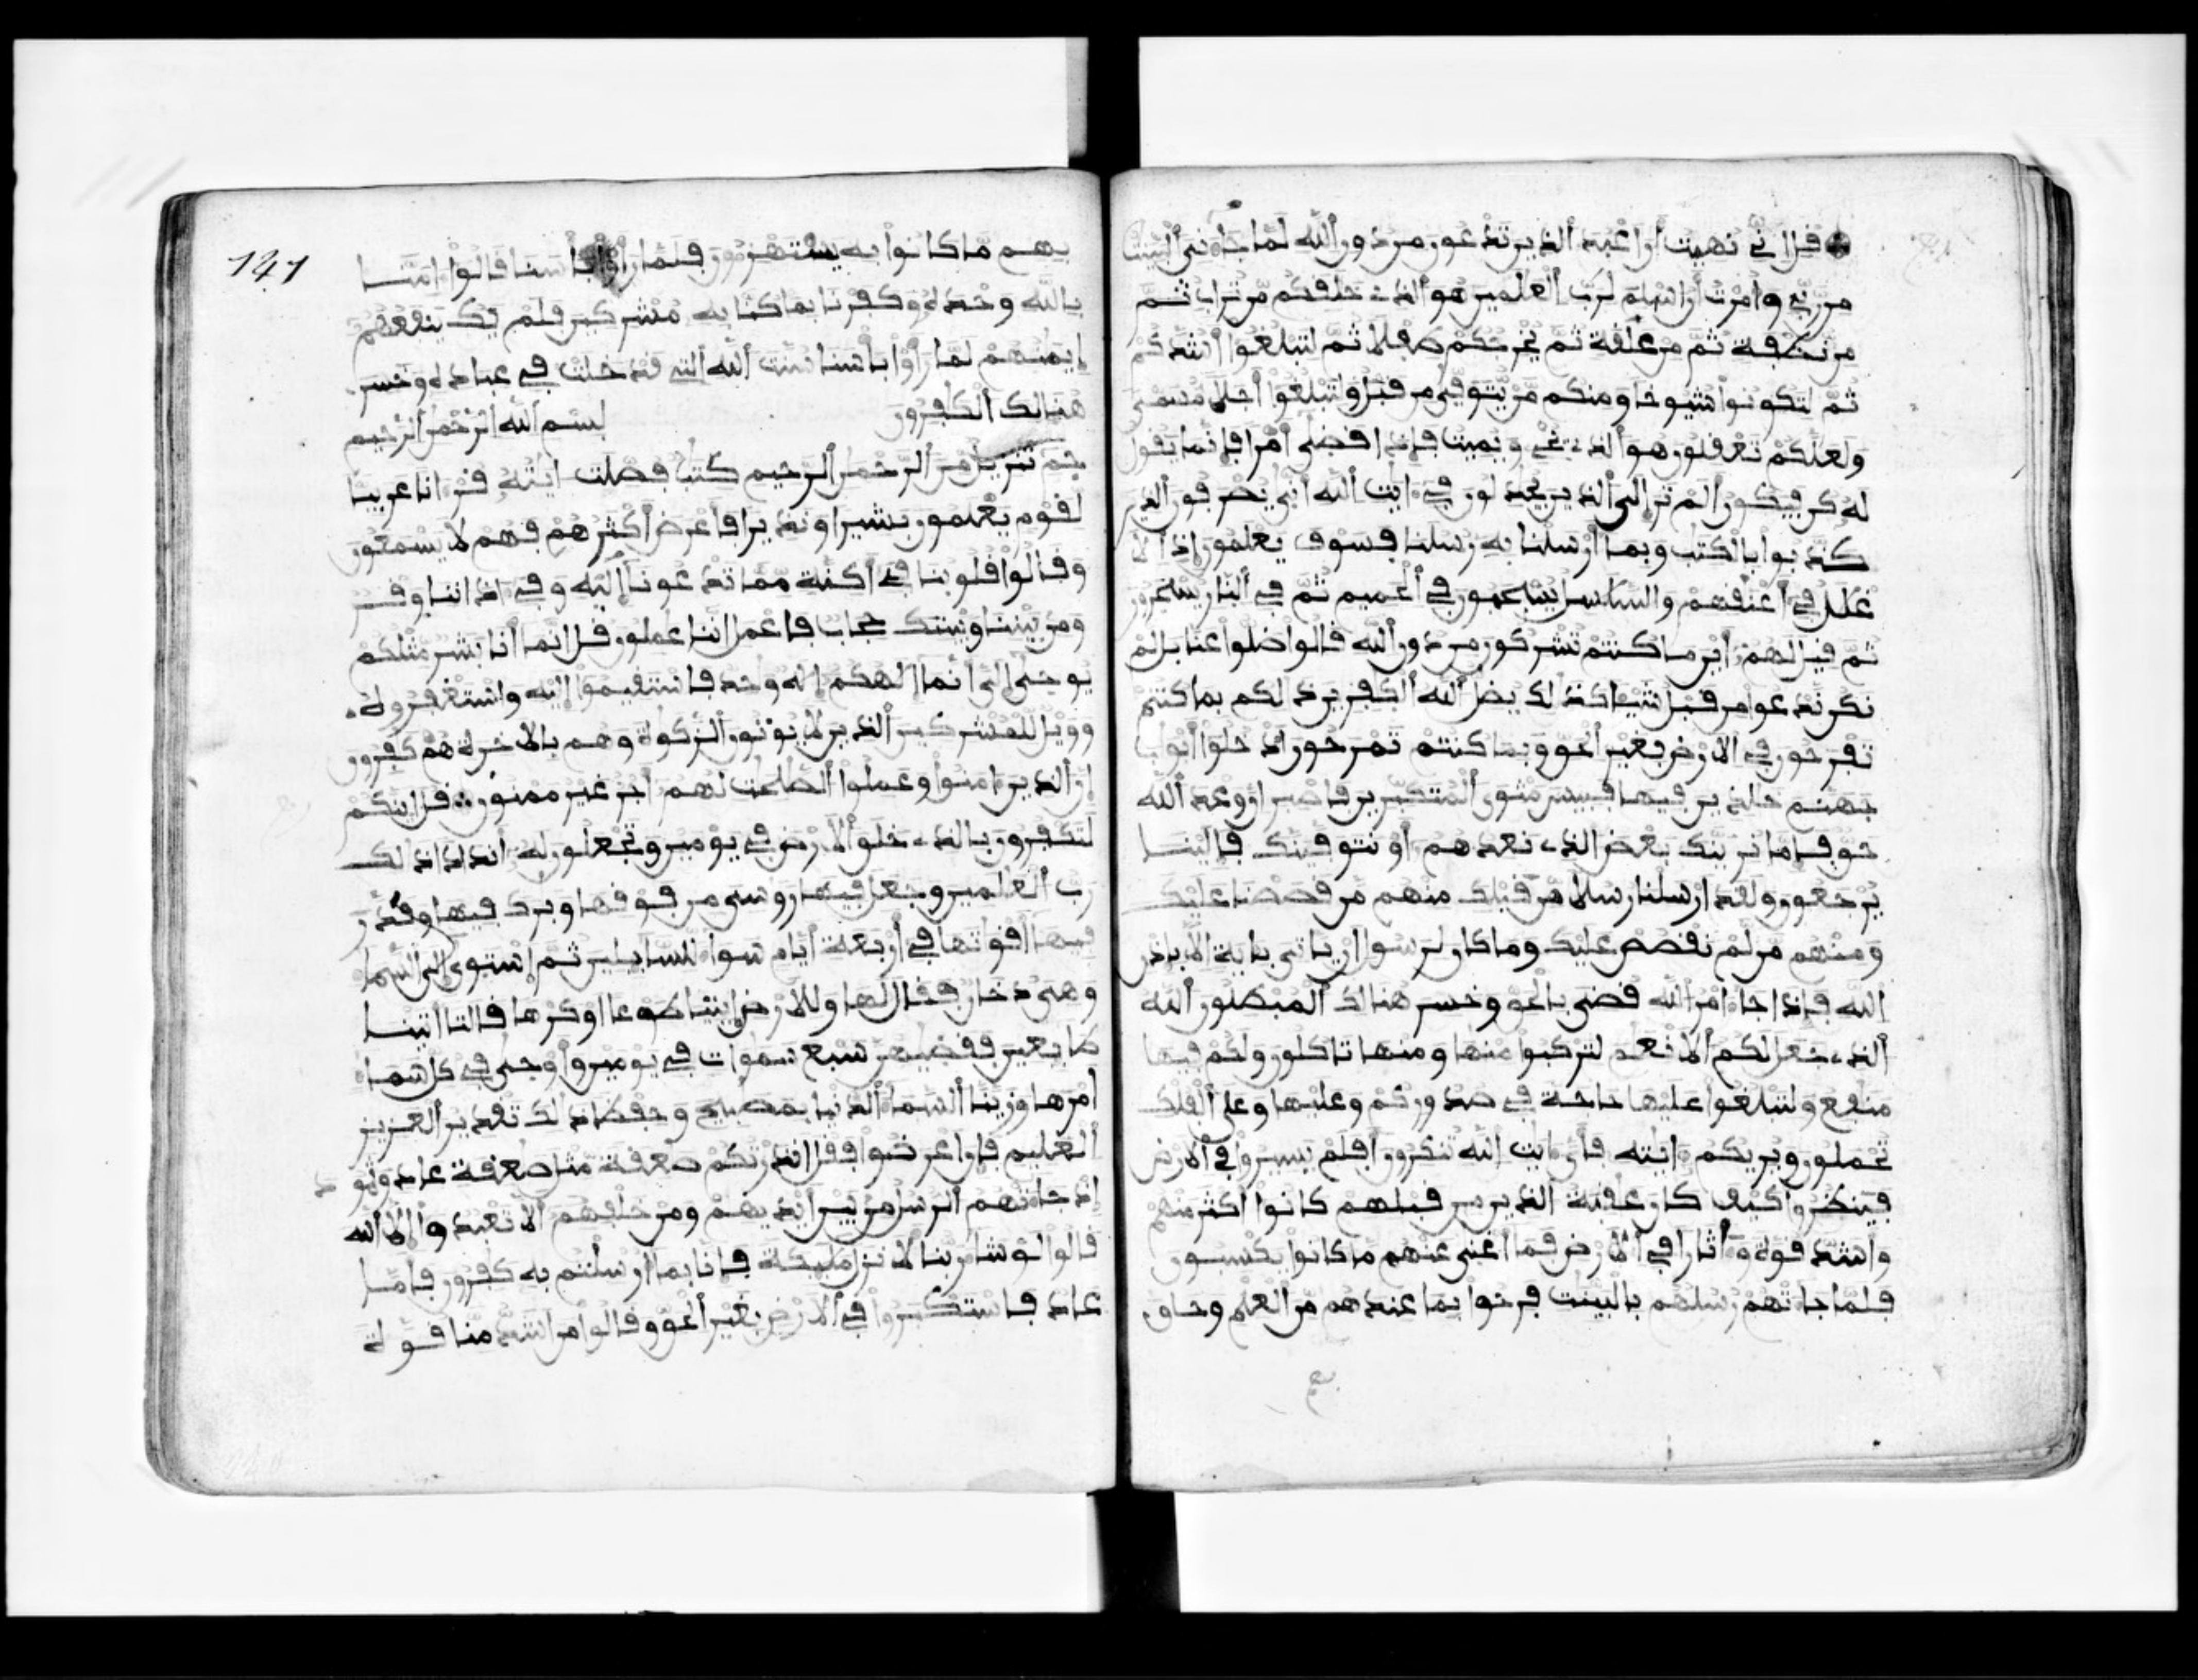 قل اني نهيت ان اعبد الذين تدعون من دون الله لما جاءني البينت
من ربي وامرت ان اسلم لرب العلمين هو الذي خلقكم من تراب ثم
من نطفة ثم من علقة ثم يخرجكم طفلا ثم لتبلغوا اشدكم
ثم لتكونوا شيوخا ومنكم من يتوفى من قبل ولتبلغوا اجلا مسمى
ولعلكم تعقلون هو الذي يحي ويميت فاذا قضى امرا فانما يقول
له كن فيكون الم تر الى الذين يجدلون في ءايت الله انى يصرفون الذين
كذبوا بالكتب وبما ارسلنا به رسلنا فسوف يعلمون اذ الا
غلل في اعنقهم والسلسل يسحبون في الحميم ثم في النار يسجرون
ثم قيل لهم اين ما كنتم تشركون من دون الله قالوا ضلوا عنا بل لم
نكن ندعوا من قبل شيا كذلك يضل الله الكفرين ذلكم بما كنتم
تفرحون في الارض بغير الحق وبما كنتم تمرحون ادخلوا ابوب
جهنم خلدين فيها فبيس مثوى المتكبرين فاصبر ان وعد الله
حق فاما نرينك بعض الذي نعدهم او نتوفينك فالينا
يرجعون ولقد ارسلنا رسلا من قبلك منهم من قصصنا عليك
ومنهم من لم نقصص عليك وما كان لرسول ان ياتي بـاية الا باذن
الله فاذا جاء امر الله قضي بالحق وخسر هنالك المبطلون الله
الذي جعل لكم الانعم لتركبوا منها ومنها تاكلون ولكم فيها
منفع ولتبلغوا عليها حاجة في صدوركم وعليها وعلى الفلك
تحملون ويريكم ءايته فاي ءايت الله تنكرون افلم يسيروا في الارض
فينظروا كيف كان عقبة الذين من قبلهم كانوا اكثر منهم
واشد قوة وءاثارا في الارض فما اغنى عنهم ما كانوا يكسبون
فلما جاءتهم رسلهم بالبينت فرحوا بما عندهم من العلم وحاق
141
بهم ما كانوا به يستهزءون فلما راوا باسنا قالوا ءامنا
بالله وحده وكفرنا بما كنا به مشركين فلم يك ينفعهم
ايمنهم لما راوا باسنا سنت الله التي قد خلت في عباده وخسر
هنالك الكفرون بسم الله الرحمن الرحيم
حم تنزيل من الرحمن الرحيم كتب فصلت ءايته قرءانا عربيا
لقوم يعلمون بشيرا ونذيرا فاعرض اكثرهم فهم لا يسمعون
وقالوا قلوبنا في اكنة مما تدعونا اليه وفي ءاذاننا وقر
ومن بيننا وبينك حجاب فاعمل اننا عملون قل انما انا بشر مثلكم
يوحى الي انما الهكم اله وحد فاستقيموا اليه واستغفروه
وويل للمشركين الذين لا يوتون الزكوة وهم بالاخرة هم كفرون
ان الذين ءامنوا وعملوا الصلحت لهم اجر غير ممنون قل اينكم
لتكفرون بالذي خلق الارض في يومين وتجعلون له اندادا ذلك
رب العلمين وجعل فيها روسي من فوقها وبرك فيها وقدر
فيها اقواتها في اربعة ايام سواء للسايلين ثم استوى الى السماء
وهي دخان فقال لها وللارض ايتيا طوعا او كرها قالتا اتينا
طايعين فقضيهن سبع سموات في يومين واوحى في كل سماء
امرها وزينا السماء الدنيا بمصبيح وحفظا ذلك تقدير العزيز
العليم فان اعرضوا فقل انذرتكم صعقة مثل صعقة عاد وثمود
اذ جاءتهم الرسل من بين ايديهم ومن خلفهم الا تعبدوا الا الله
قالوا لو شاء ربنا لانزل مليكة فانا بما ارسلتم به كفرون فاما
عاد فاستكبروا في الارض بغير الحق وقالوا من اشد منا قوة